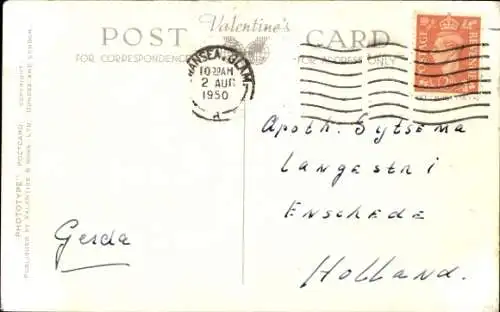 POST Valentine's CARD
FOR CORRESPONDENCE FOR ADDRESS ONLY
SWANSEA. GLAM
10 AM
2 AUG
1950
POSTAGE REVENUE
Apoth. Sytsema
Langestri
Enschede
Holland.
Gerda
"PHOTOTYPE" POSTCARD COPYRIGHT
PUBLISHED BY VALENTINE & SONS, LTD. DUNDEE AND LONDON